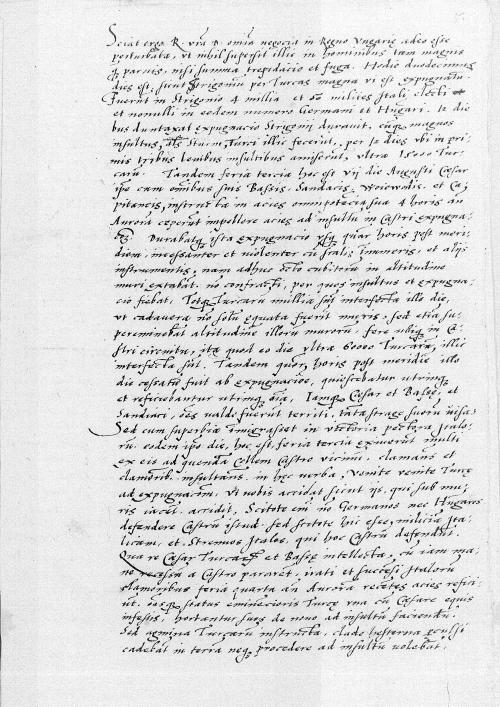 Sciat ergo R. vra D. omia negocia in Regno Vngarie adeo esse
perturbata, vt nihil supersit illic in hominibus tam magnis
q3 paruis, nisi summa trepidacio et fuga. Hodie duodecimus
dies est, sicut Strigoniu per Turcas magna vi est expugnatu.
Fuerunt in Strigonio 4 millia et 50 milites Itali, electi
et nonulli in eodem numero Germani et Hugari. 12 die
bus duntaxat expugnacio Strigonij durauit, magnos
insultus, Sturm, Turci illic fecerunt, per 12 dies vbi in pri
mis tribus leuibus insultibus amiserut, vltra 15000 Tur
caru. Tandem feria tercia hoc est vij die Augusti Cæsar
ipe cum omibus suis Bassis. Sandacis, Woieuodis. et Ca
pitaneis, instructa in acies omni potecia, sua 4 horis an
Aurora ceperut impellere acies ad insultu in Castri expugna
Durabatq3 ista expugnacio vsq3 quar horis post meri
diem, incessanter et violenter cu scalis inumeris, et alijs
instrumentis, nam adhuc octo cubitoru in altitudine
muri extabat. no confracti, per quos insultus et expugna
cio fiebat. Totq3 Turcaru millia sut interfecta illo die,
vt cadauera no solu equata fuerit muris, sed etia su
pereminebat altitudine illoru muroru. fere vbiq3 in Ca
stri circuitu, ita quod eo die vltra 6000 Turcaru, illic
interfecta sut. Tandem quor horis post meridie illo
die cessatu fuit ab expugnacioe, quiescebatur vtrinq3
et reficiebantur vtrinq3 oia, Iamq3 Cæsar et Basse, et
Sandaci, oes valde fuerut territi, tata strage suoru visa.
Sed cum superbia imigrasset in victoria pectora Italo
ru. eodem ipo die, hoc est feria tercia exiuerut multi
ex eis ad quenda Collem Castro vicinu. clamans et
clamorib. insultans. in hec verba, Venite venite Turce
ad expugnacm. Vt vobis accidat sicut ijs. qui sub mu
ris iacet. accidit, Scitote eni no Germanos nec Hugaros
defendere Castru istud. sed scitote hic esse, milicia Ita
licam, et strenuos Italos, qui hoc Castru defendut.
Qua re Cæsar Turcaru et Basse intellecta, cu iam ma
ne recessu a Castro pararet, irati et succesi Italoru
clamoribus feria quarta an Aurora recetes acies refici
ut. status eminecioris Turce vna cu Cæsare equis
insessis, hortantur suos de nouo ad insultu faciendu.
Sed agmina Turcaru instructa, clade hesterna
cadebat in terra neq3 procedere ad insultu volebat.